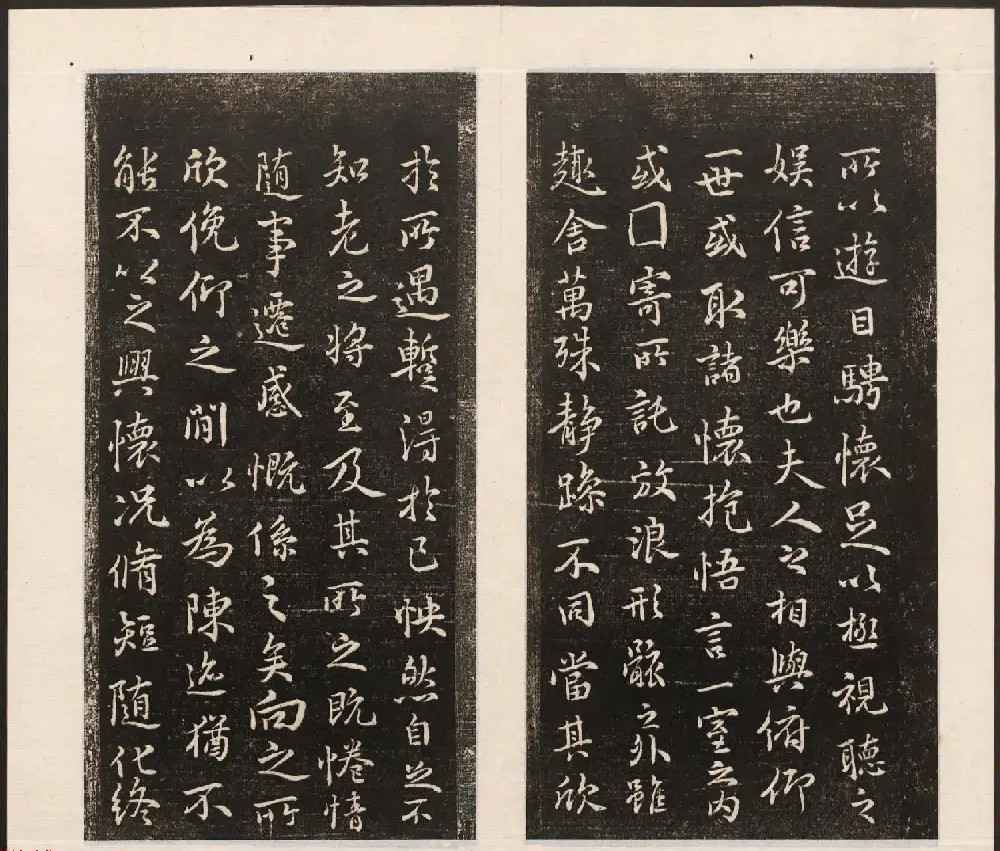 所以遊目騁懷足以極視聽之
娛信可樂也夫人之相與俯仰
一世或取諸懷抱悟言一室之內
或囗寄所託放浪形骸之外雖
趣舍萬殊靜躁不同當其欣
於所遇暫得於己怏然自足不
知老之將至及其所之既惓情
隨事遷感慨係之矣向之所
欣俛仰之間以為陳迹猶不
能不以之興懷況脩短隨化終